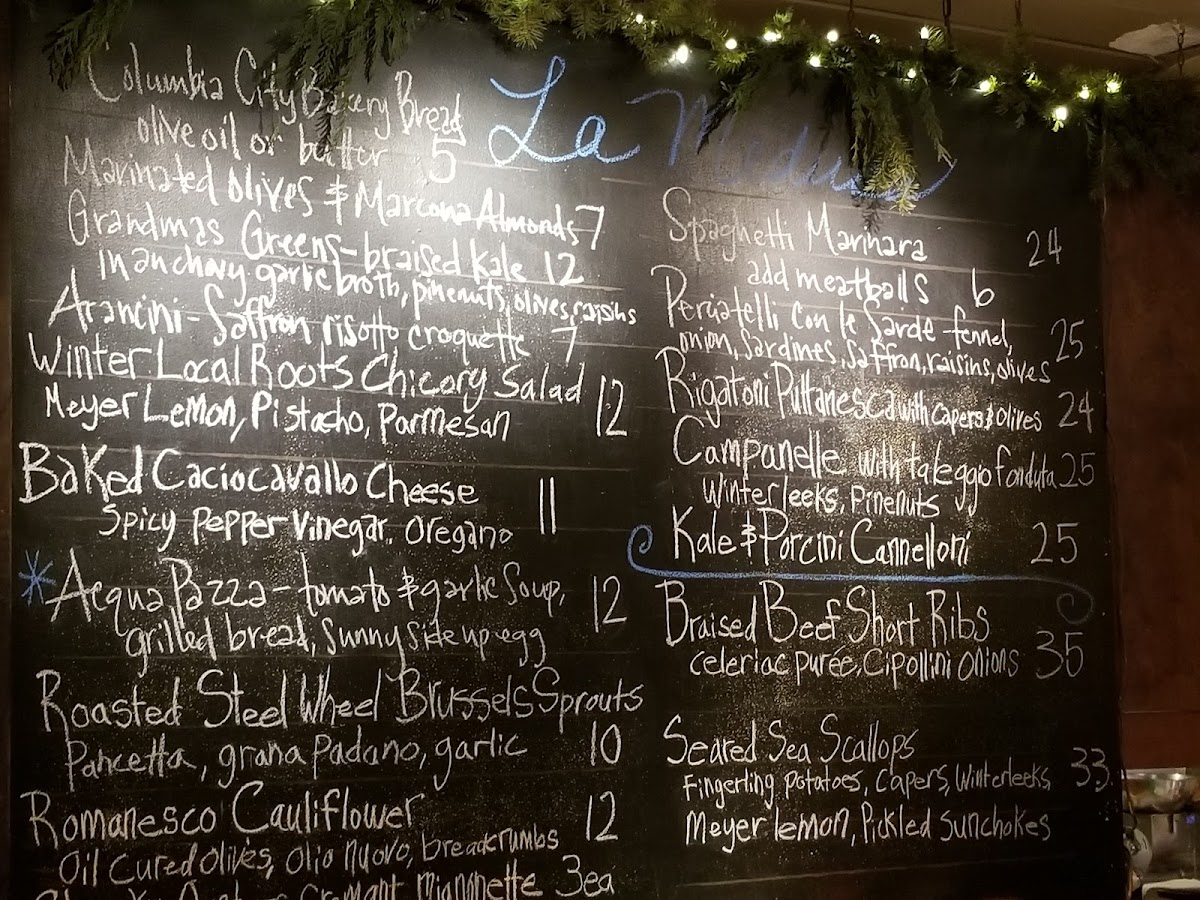 La Medusa
Columbia City Bakery Bread
olive oil or butter 5
Marinated olives & Marcona Almonds 7
Grandmas Greens - braised Kale 12
in anchovy garlic broth, pinenuts, olives, raisins
Arancini - Saffron risotto croquette 7
Winter Local Roots Chicory Salad
Meyer Lemon, Pistacho, Parmesan 12
Baked Caciocavallo Cheese 11
Spicy pepper Vinegar, Oregano
Acqua Pazza - tomato & garlic Soup, 12
grilled bread, Sunny side up egg
Roasted Steel Wheel Brussels Sprouts
Pancetta, grana Padano, garlic 10
Romanesco Cauliflower 12
Oil Cured olives, Olio Nuovo, breadcrumbs
Cremant Mignonette 3ea
Spaghetti Marinara 24
add meatballs 6
Perciatelli con le Sarde - fennel, 25
onion, Sardines, Saffron, raisins, olives
Rigatoni Puttanesca with capers & olives 24
Campanelle with taleggio fonduta 25
Winter leeks, Pinenuts
Kale & Porcini Cannelloni 25
Braised Beef Short Ribs
celeriac purée, Cipollini onions 35
Seared Sea Scallops
Fingerling potatoes, Capers, Winter leeks, 33
Meyer lemon, Pickled Sunchokes